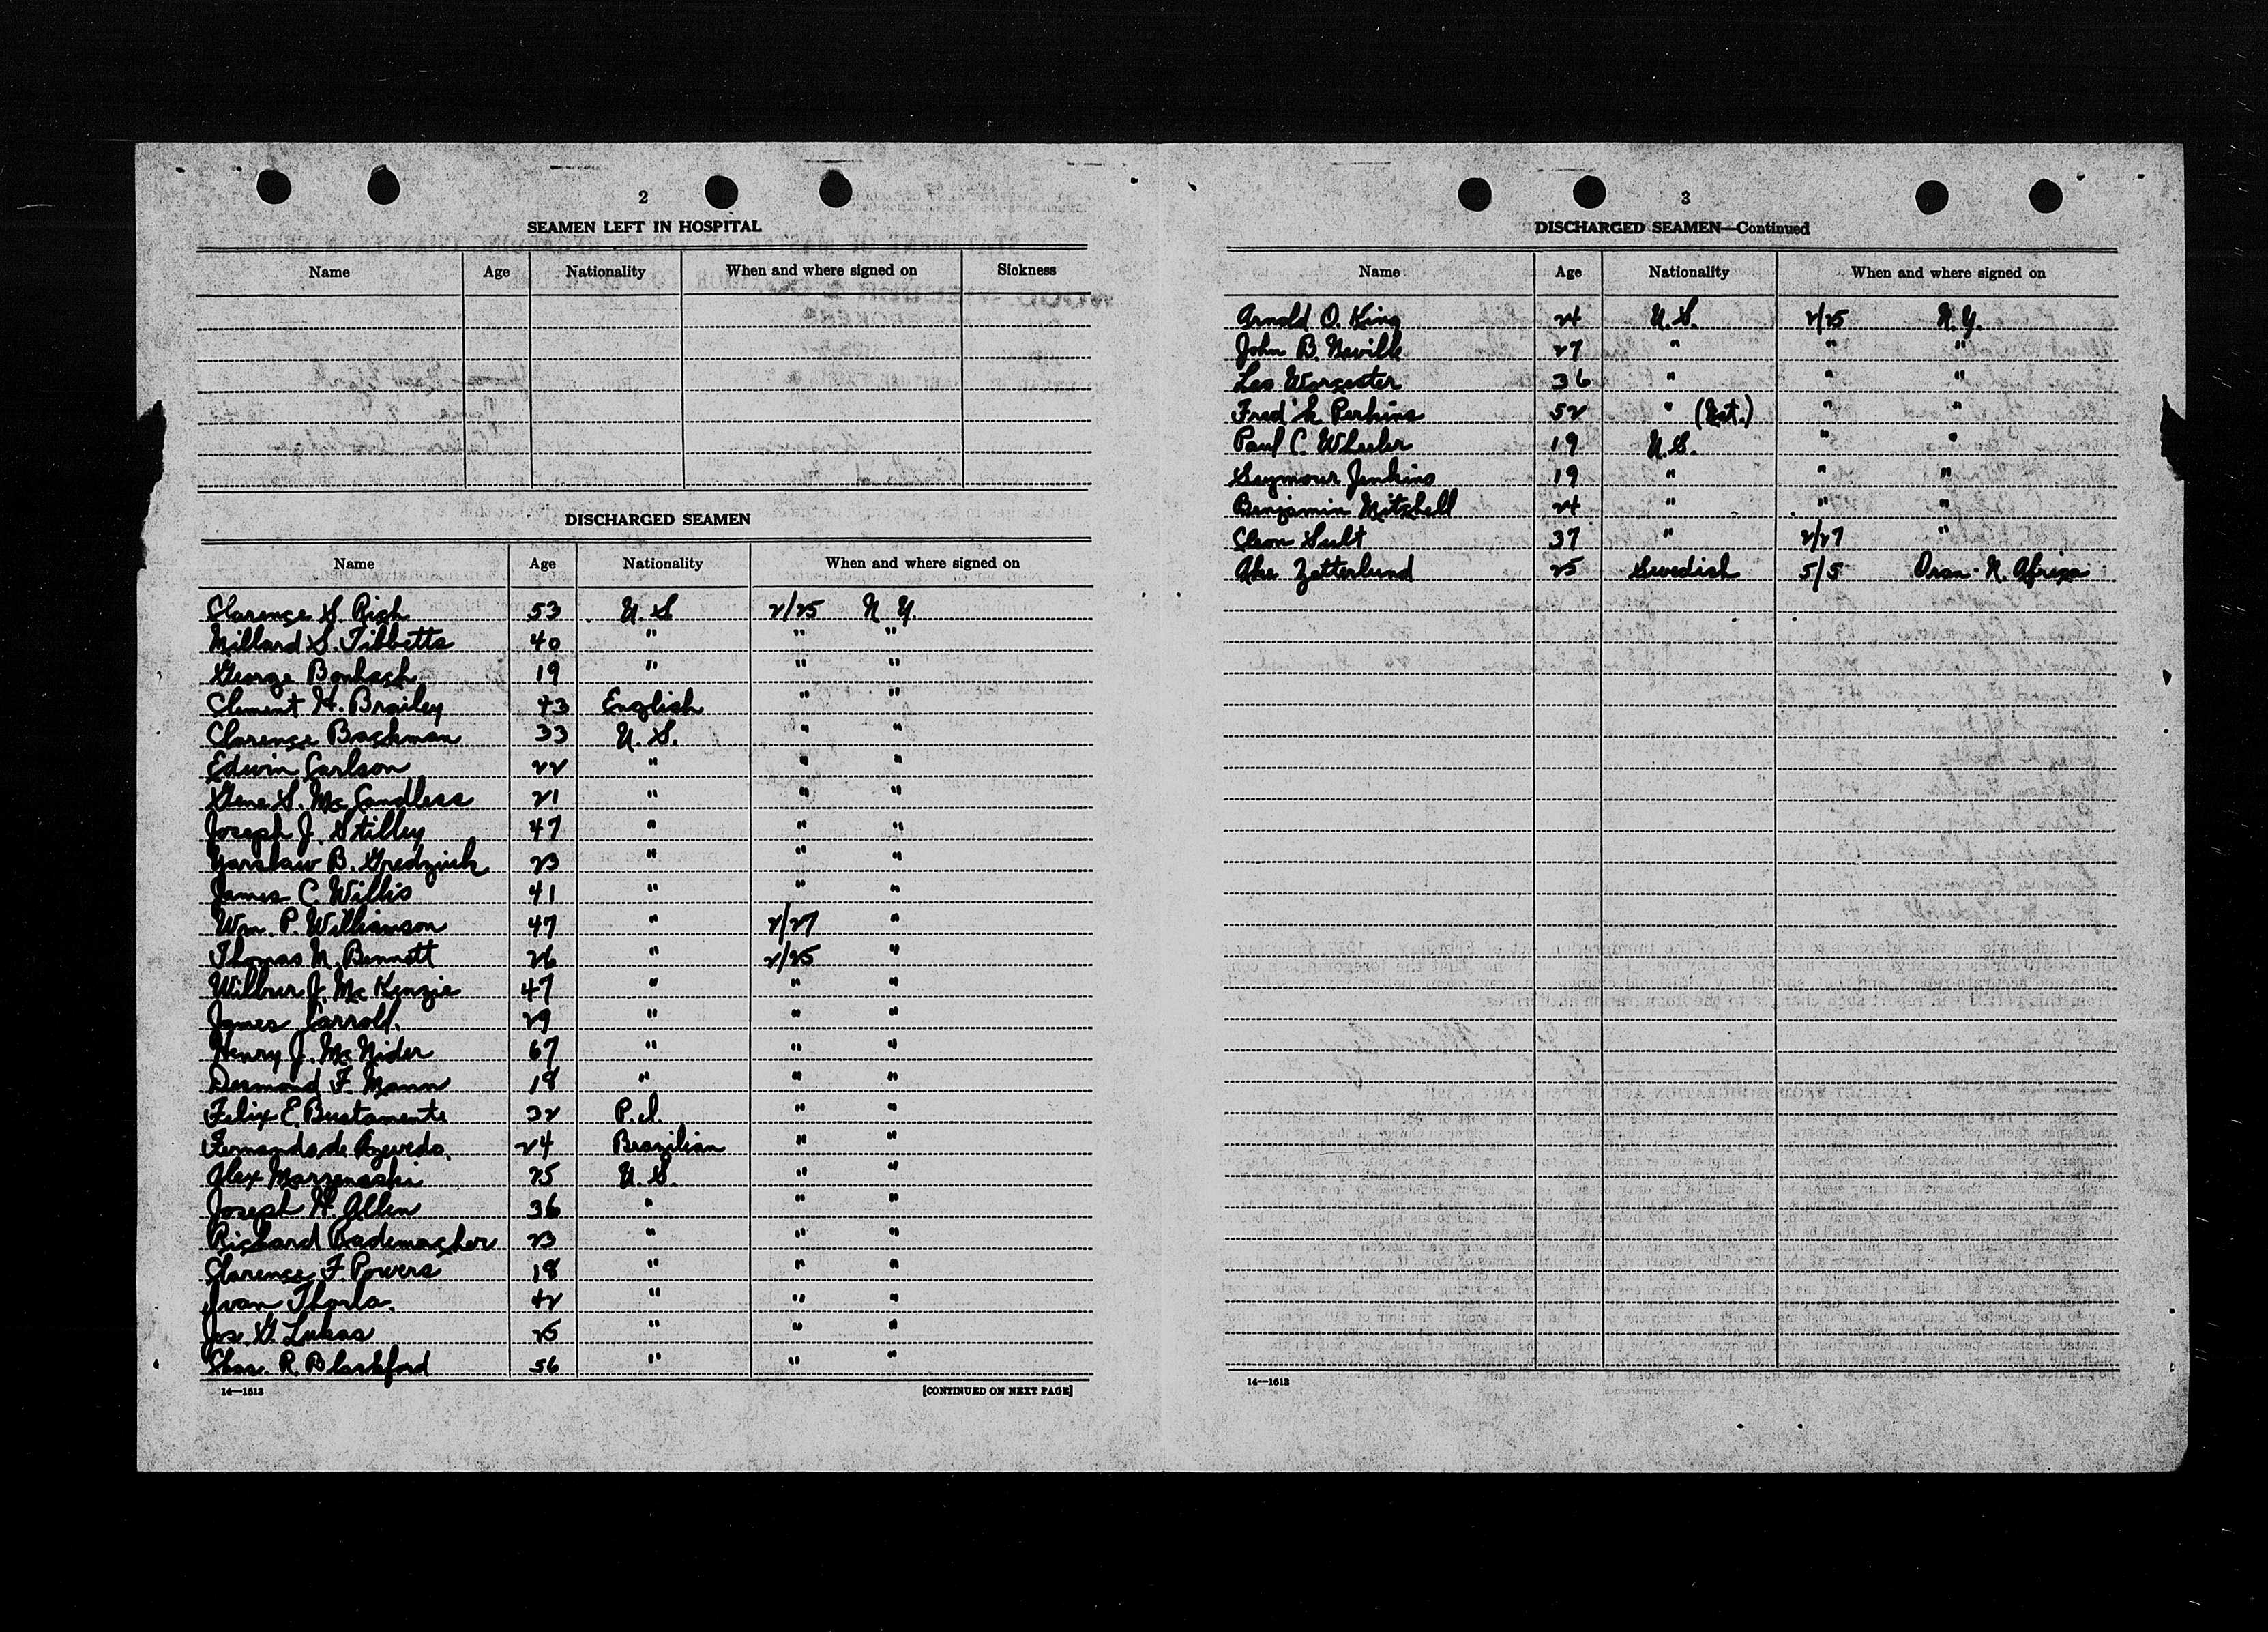 2
SEAMEN LEFT IN HOSPITAL
Name Age Nationality When and where signed on Sickness
DISCHARGED SEAMEN
Name Age Nationality When and where signed on
Clarence S. Rich 53 U.S. 2/25 N.Y.
Millard S. Tibbetts 40 " " "
George Bonhach 19 " " "
Clement H. Brailey 43 English " "
Clarence Bachman 33 U.S. " "
Edwin Carlson 22 " " "
Gene S. McCandless 21 " " "
Joseph J. Stilley 47 " " "
Yarslaw B. Gredziuk 23 " " "
James C. Willis 41 " " "
Wm. P. Williamson 47 " 2/27 "
Thomas N. Bennett 26 " 2/25 "
Wilbur J. McKenzie 47 " " "
James Carroll. 29 " " "
Henry J. McNider 67 " " "
Desmond F. Mann 18 " " "
Felix E. Bustamente 32 P.I. " "
Fernando de Azevedo. 24 Brazilian " "
Alex 25 U.S. " "
Joseph H. Allen 36 " " "
Richard Rademacher 23 " " "
Clarence F. Powers 18 " " "
Ivan Thorla. 42 " " "
Jos. G. Lukas 25 " " "
Chas. R. Blackford 56 " " "
14—1613
[CONTINUED ON NEXT PAGE]
3
DISCHARGED SEAMEN—Continued
Name Age Nationality When and where signed on
Arnold O. King 24 U.S. 2/25 N.Y.
John B. Neville 27 " " "
Les Worcester 36 " " "
Fred'k Perkins 52 " (Est.) " "
Paul C. Wheeler 19 U.S. " "
Seymour Jenkins 19 " " "
Benjamin Mitchell 24 " " "
Cleon Sult 37 " 2/27 "
Ake Zetterlund 25 Swedish 5/5 Oran - N. Africa
14—1613